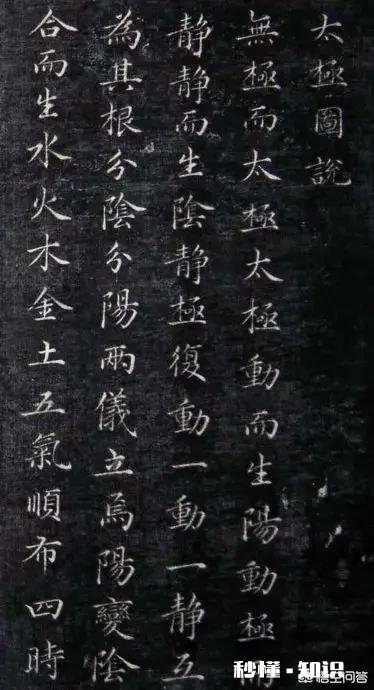 太極圖說
無極而太極太極動而生陽動極而
静静而生陰静極復動一動一静互
為其根分陰分陽兩儀立焉陽變陰
合而生水火木金土五氣順布四時
秒懂·知识
悟空问答